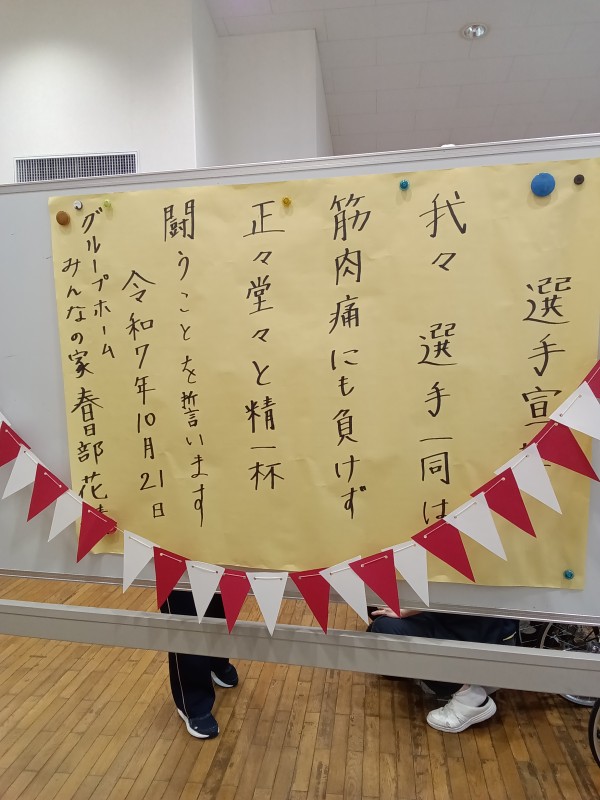 選手宣
我々 選手一同は
筋肉痛にも負けず
正々堂々と精一杯
闘うことを誓います
令和7年10月21日
グループホーム
みんなの家 春日部 花